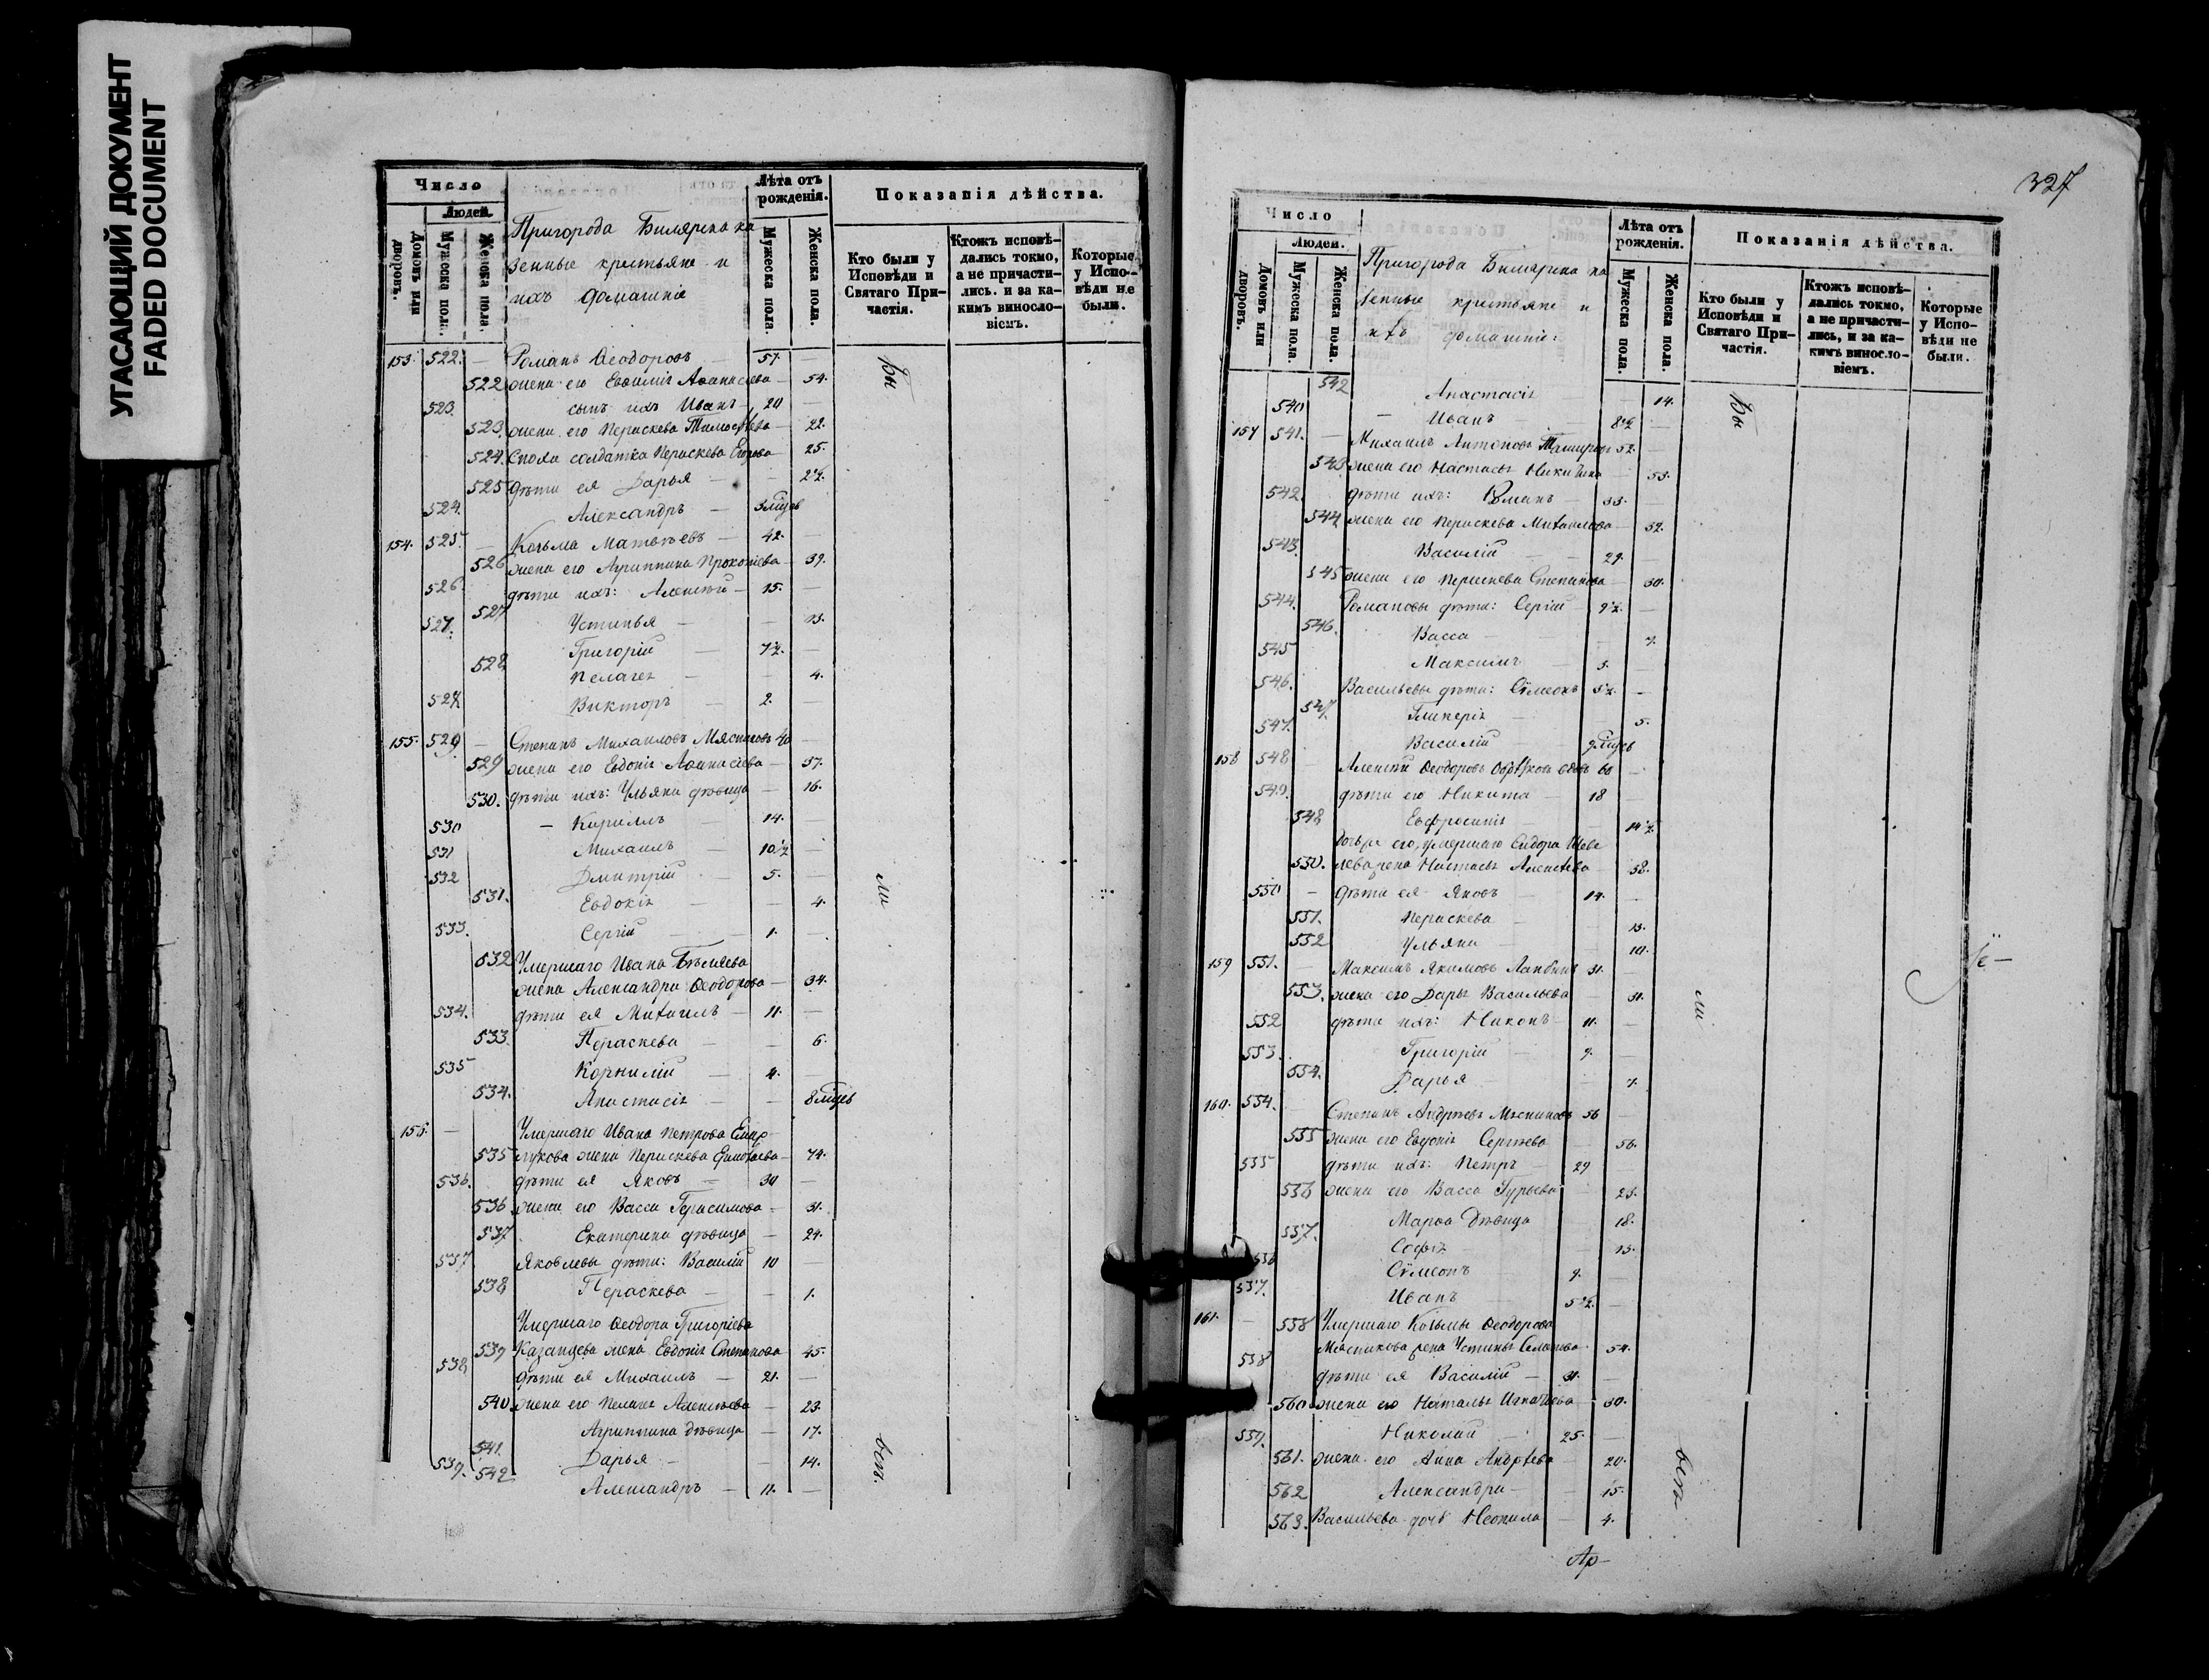 УГАСАЮЩИЙ ДОКУМЕНТ
FADED DOCUMENT
Число
Людей.
Домовъ или дворовъ.
Мужеска пола.
Женска пола.
Пригорода Билярска ка
зенные крестьяне и
ихъ домашніе
Лѣта отъ рожденія.
Мужеска пола.
Женска пола.
Показанія дѣйства.
Кто были у Исповѣди и Святаго Причастія.
Ктожъ исповѣдались токмо, а не причастились. и за какимъ винословіемъ.
Которые у Исповѣди не были.
153. 522. — Романъ Ѳеодоровъ — 57. —
522 жена его Евѳимія Аѳанасіева — 54.
523. сынъ ихъ Иванъ — 20 —
523. жена его Параскева Тимоѳѣева — 22.
524. Сноха солдатка Параскева Егорова — 25.
525 дѣти ея Дарья — — 2½.
524. Александръ — 3 мѣсцъ
154. 525. — Козьма Матвѣевъ — 42. —
526 жена его Агриппина Прокопіева — 39.
526. дѣти ихъ: Алексѣй — 15. —
527 Устинья — — 13.
527. Григорій — 7½. —
528 Пелагея — — 4.
528 Викторъ — 2. —
155. 529 — Степанъ Михаиловъ Мясниковъ 40 —
529 жена его Евдокія Аѳанасіева — 37.
530. дѣти ихъ: Ульяна дѣвица — 16.
530 — Кириллъ — 14. —
531 Михаилъ — 10½ —
532 Дмитрій — 5. —
531. Евдокія — — 4.
533. Сергій — 1. —
532 Умершаго Ивана Бѣляева
жена Александра Ѳеодорова — 34.
534. дѣти ея Михаилъ — 11. —
533. Параскева — — 6.
535 Корнилій — 4. —
534. Анастасія — — 8 мѣсцъ
156. — Умершаго Ивана Петрова
535 жена Параскева — 74.
536. дѣти ея Яковъ — 30 —
536 жена его Васса Герасимова — 31.
537 Екатерина дѣвица — 24.
537 Яковлевы дѣти: Василій 10 —
538 Параскева — — 1.
Умершаго Ѳеодора Григоріева
539 Казанцева жена Евдокія Степанова 45.
538 дѣти ея Михаилъ — 21. —
540 жена его Пелагея Алексѣева — 23.
Агриппина дѣвица — 17.
541. Дарья — — 14.
539. 542 Александръ — 11. —
Бы
ли
вст.
327
Число
Людей.
Домовъ или дворовъ.
Мужеска пола.
Женска пола.
Пригорода Билярска ка
зенные крестьяне и
ихъ домашніе:
Лѣта отъ рожденія.
Мужеска пола.
Женска пола.
Показанія дѣйства.
Кто были у Исповѣди и Святаго Причастія.
Ктожъ исповѣдались токмо, а не причастились, и за какимъ винословіемъ.
Которые у Исповѣди не были.
542 Анастасія — 14.
540 — Иванъ — 8½ —
157 541. — Михаилъ Антоновъ 52. —
543 жена его Настасья Никитина 53.
542. дѣти ихъ: Романъ — 33. —
544 жена его Параскева Михаилова — 32.
543. Василій — 29. —
545 жена его Параскева Степанова — 30.
544. Романовы дѣти: Сергій — 9½. —
546. Васса — 7.
545 Максимъ — 5. —
546. Васильевы дѣти: Сѵмеонъ 5½. —
547. Гликерія — 5.
547. Василій — 9 мѣсцъ
158 548 — Алексѣй Ѳеодоровъ вдовъ 60 —
549. дѣти его Никита — 18 —
548 Евфросинія — 14½.
умершаго
550. жена Настасья Алексѣева — 38.
550 — дѣти ея Яковъ — 14. —
551. Параскева — 13.
552 Ульяна — 10.
159 551. — Максимъ Якимовъ 31. —
553. жена его Дарья Васильева — 31.
552 дѣти ихъ: Никонъ — 11. —
553. Григорій — 9. —
554. Дарья — 7.
160. 554. — Степанъ Андреевъ Мясниковъ 56 —
555 жена его Евдокія Сергѣева — 56.
555 дѣти ихъ: Петръ — 29 —
556 жена его Васса Гурьева — 25.
557. Марѳа дѣвица 18.
Софія — 13.
556 Сѵмеонъ 9. —
557. Иванъ — 5½. —
161. — 558 Умершаго Козьмы Ѳеодорова
Мясникова жена Устинья 54.
558 дѣти ея Василій — 31. —
560 жена его Наталья Игнатіева — 30.
559. Николай — 25. —
561. жена его Анна Андрѣева — 20.
562 Александра — — 15.
563. Васильева дочь Неонила — 4.
Бы
ли
вст
Ар-